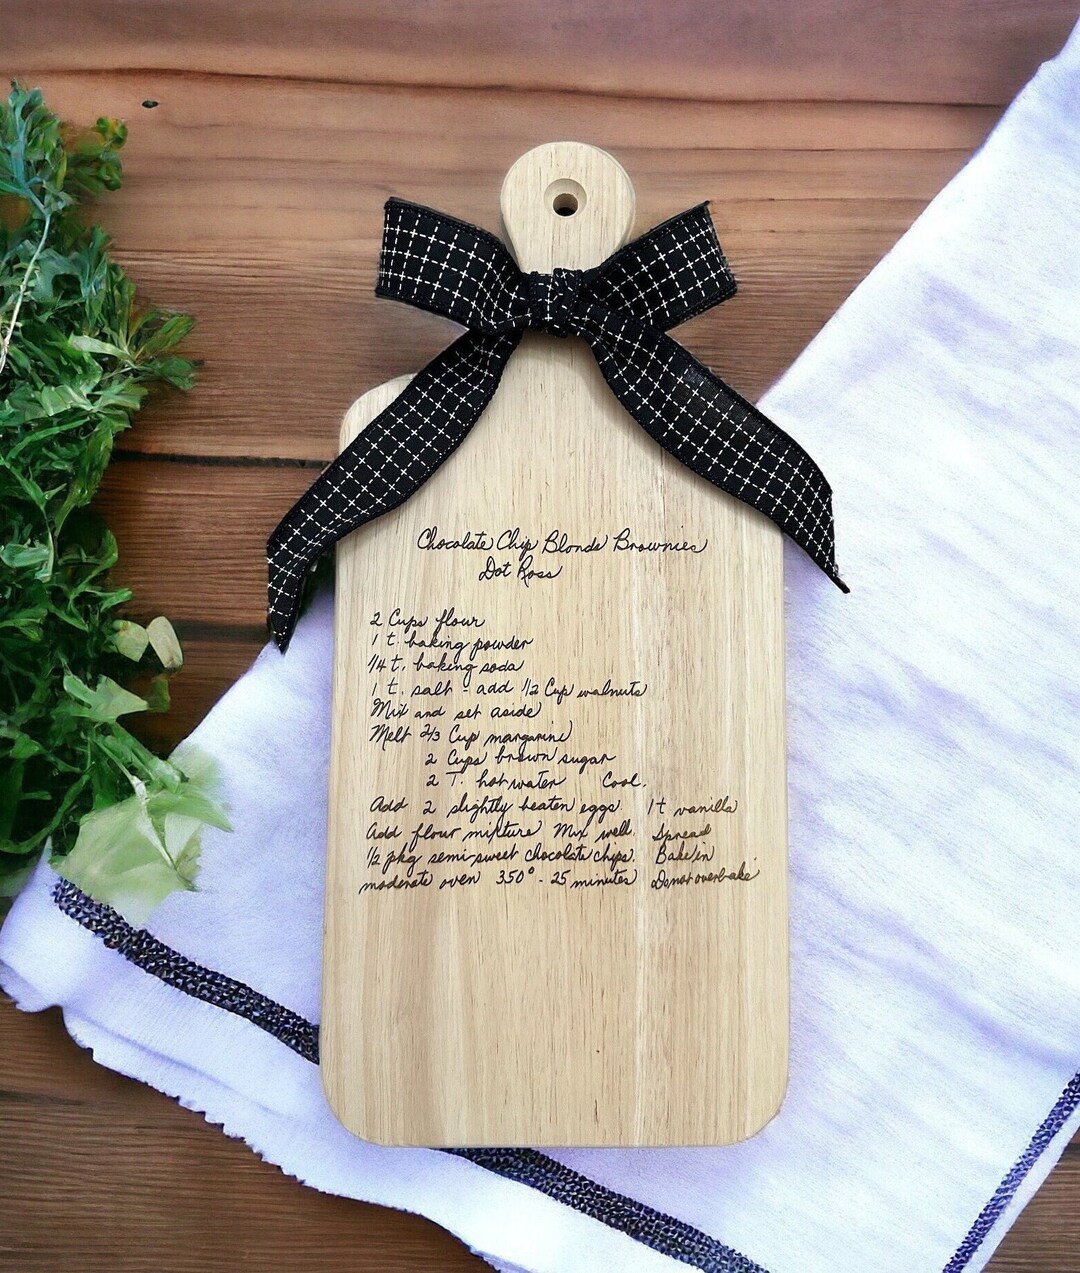 Chocolate Chip Blonde Brownies
Dot Ross
2 Cups flour
1 t. baking powder
1/4 t. baking soda
1 t. salt - add 1/2 Cup walnuts
Mix and set aside
Melt 2/3 Cup margarine
2 Cups brown sugar
2 T. hot water Cool.
Add 2 slightly beaten eggs. 1 t vanilla
Add flour mixture Mix well. Spread
1/2 pkg semi-sweet chocolate chips. Bake in
moderate oven 350° - 25 minutes Do not overbake